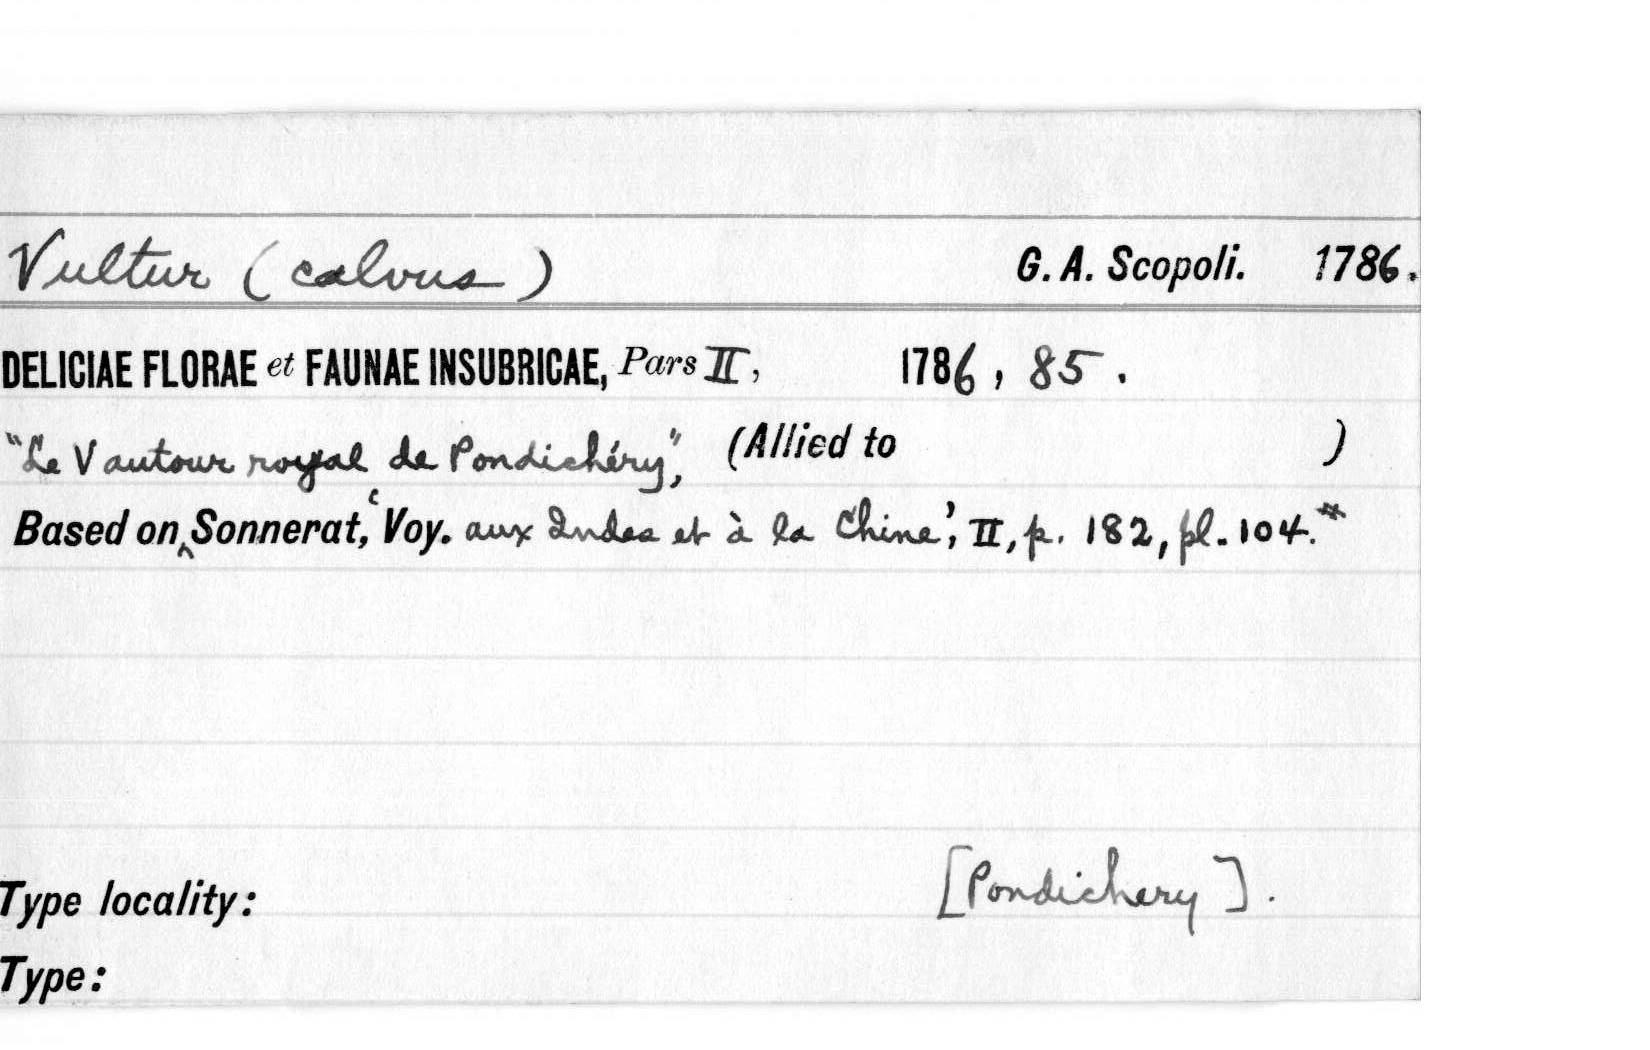 Vultur (calvus) G. A. Scopoli. 1786.
DELICIAE FLORAE et FAUNAE INSUBRICAE, Pars II, 1786, 85.
"Le Vautour royal de Pondichéry", (Allied to )
Based on ^ Sonnerat, 'Voy. aux Indes et à la Chine', II, p. 182, pl. 104.*
[Pondichery].
Type locality:
Type: